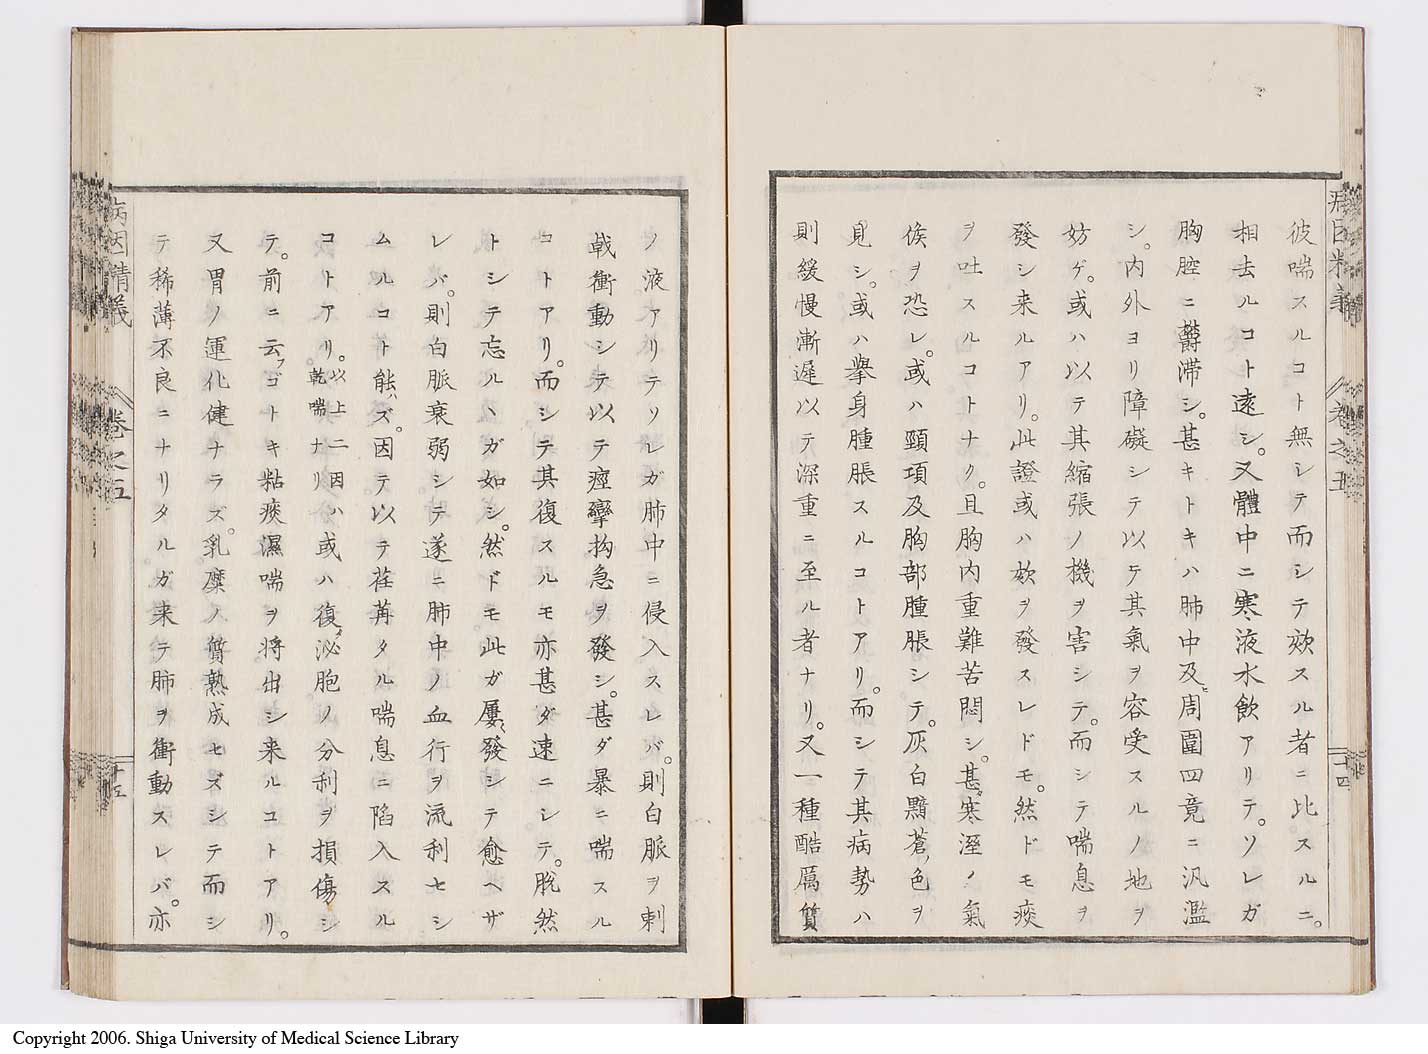 彼喘スルコト無シテ而シテ欬スル者ニ比スルニ。
相去ルコト遠シ。又體中ニ寒液水飲アリテ。ソレガ
胸腔ニ欝滞シ。甚キトキハ肺中及ヒ周圍四竟ニ汎濫
シ。内外ヨリ障礙シテ以テ其氣ヲ容受スルノ地ヲ
妨ゲ。或ハ以テ其縮張ノ機ヲ害シテ。而シテ喘息ヲ
發シ来ルアリ。此證或ハ欬ヲ發スレドモ。然ドモ痰
ヲ吐スルコトナク。且胸内重難苦悶シ。甚寒溼ノ氣
候ヲ恐レ。或ハ頸項及胸部腫脹シテ。灰白黯蒼ノ色ヲ
見シ。或ハ擧身腫脹スルコトアリ。而シテ其病勢ハ
則緩慢漸遲以テ深重ニ至ル者ナリ。又一種酷厲質
病因精義 卷之五 十四
ノ液アリテソレガ肺中ニ侵入スレバ。則白脈ヲ刺
戟衝動シテ以テ痙攣拘急ヲ發シ。甚ダ暴ニ喘スル
コトアリ。而シテ其復スルモ亦甚ダ速ニシテ。脱然
トシテ忘ルヽガ如シ。然ドモ此ガ屢〻發シテ愈ヘザ
レバ。則白脈衰弱シテ遂ニ肺中ノ血行ヲ流利セシ
ムルコト能ハズ。因テ以テ荏苒タル喘息ニ陷入スル
コトアリ。以上二因ハ乾喘ナリ 或ハ復タ泌胞ノ分利ヲ損傷シ
テ。前ニ云フゴトキ粘痰濕喘ヲ将出シ来ルコトアリ。
又胃ノ運化健ナラズ。乳糜ノ質熟成セズシテ而シ
テ稀薄不良ニナリタルガ来テ肺ヲ衝動スレバ。亦
病因精義 卷之五 十五
Copyright 2006. Shiga University of Medical Science Library